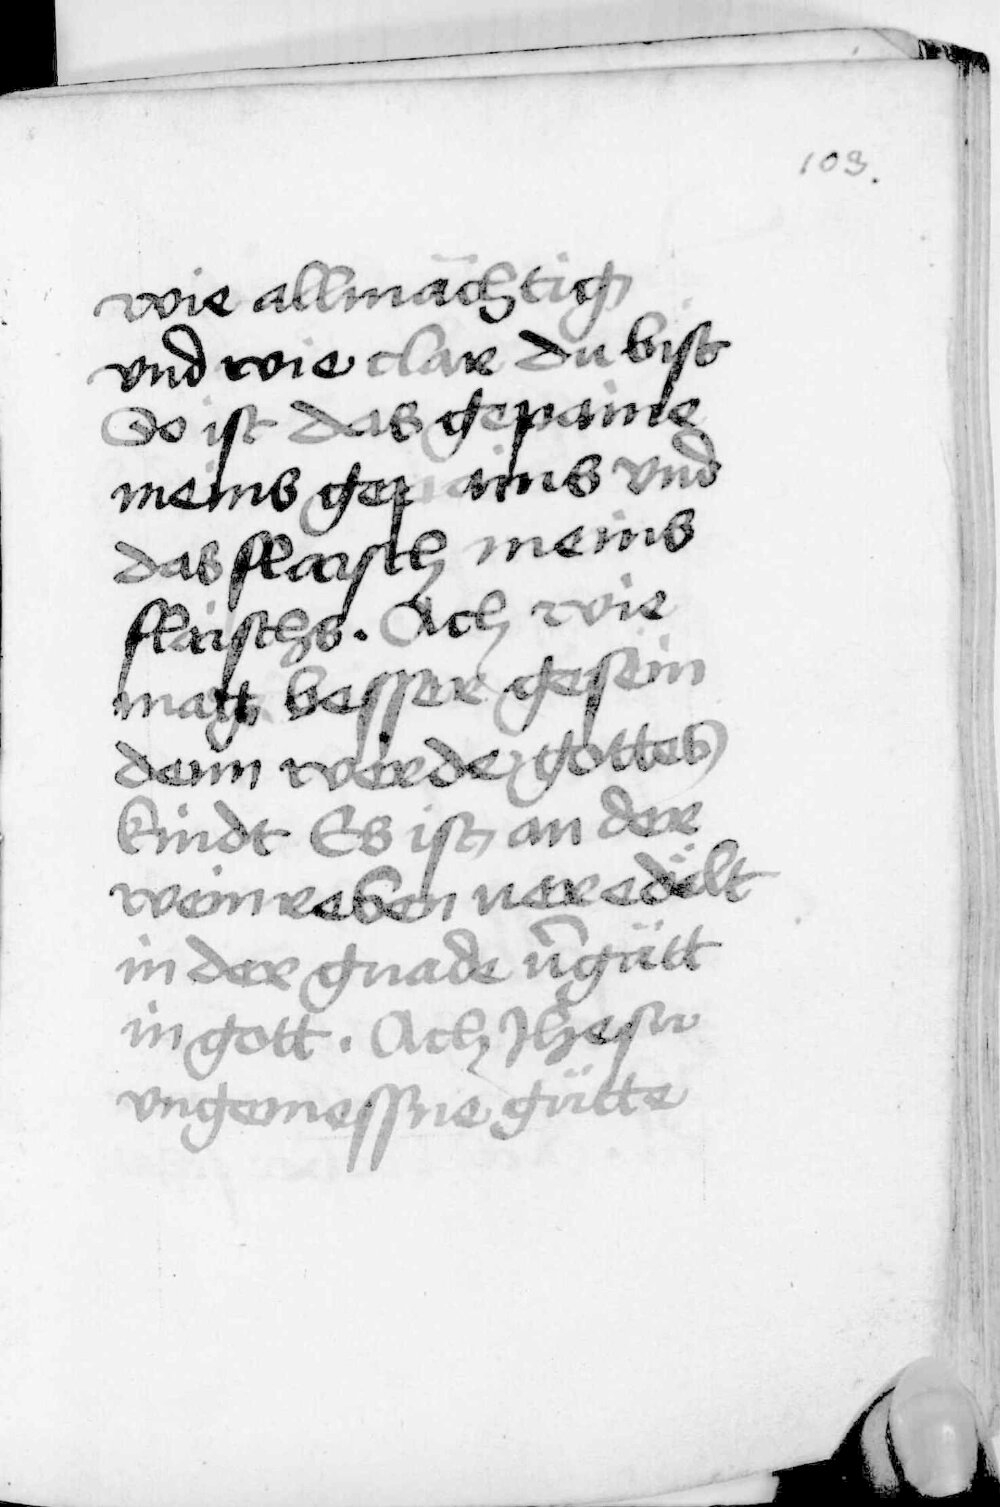 103.
wie allmächtig
vnd wie clar du bist
So ist das gepaine
meins gepains vnd
das flaisch meins
flaischs. Ach wie
mag besser gesein
denn werde gottes
kindt Es ist an der
weinreben veredelt
in der gnade vñ gütt
in gott. Ach Jhesu
vngemessne gütte